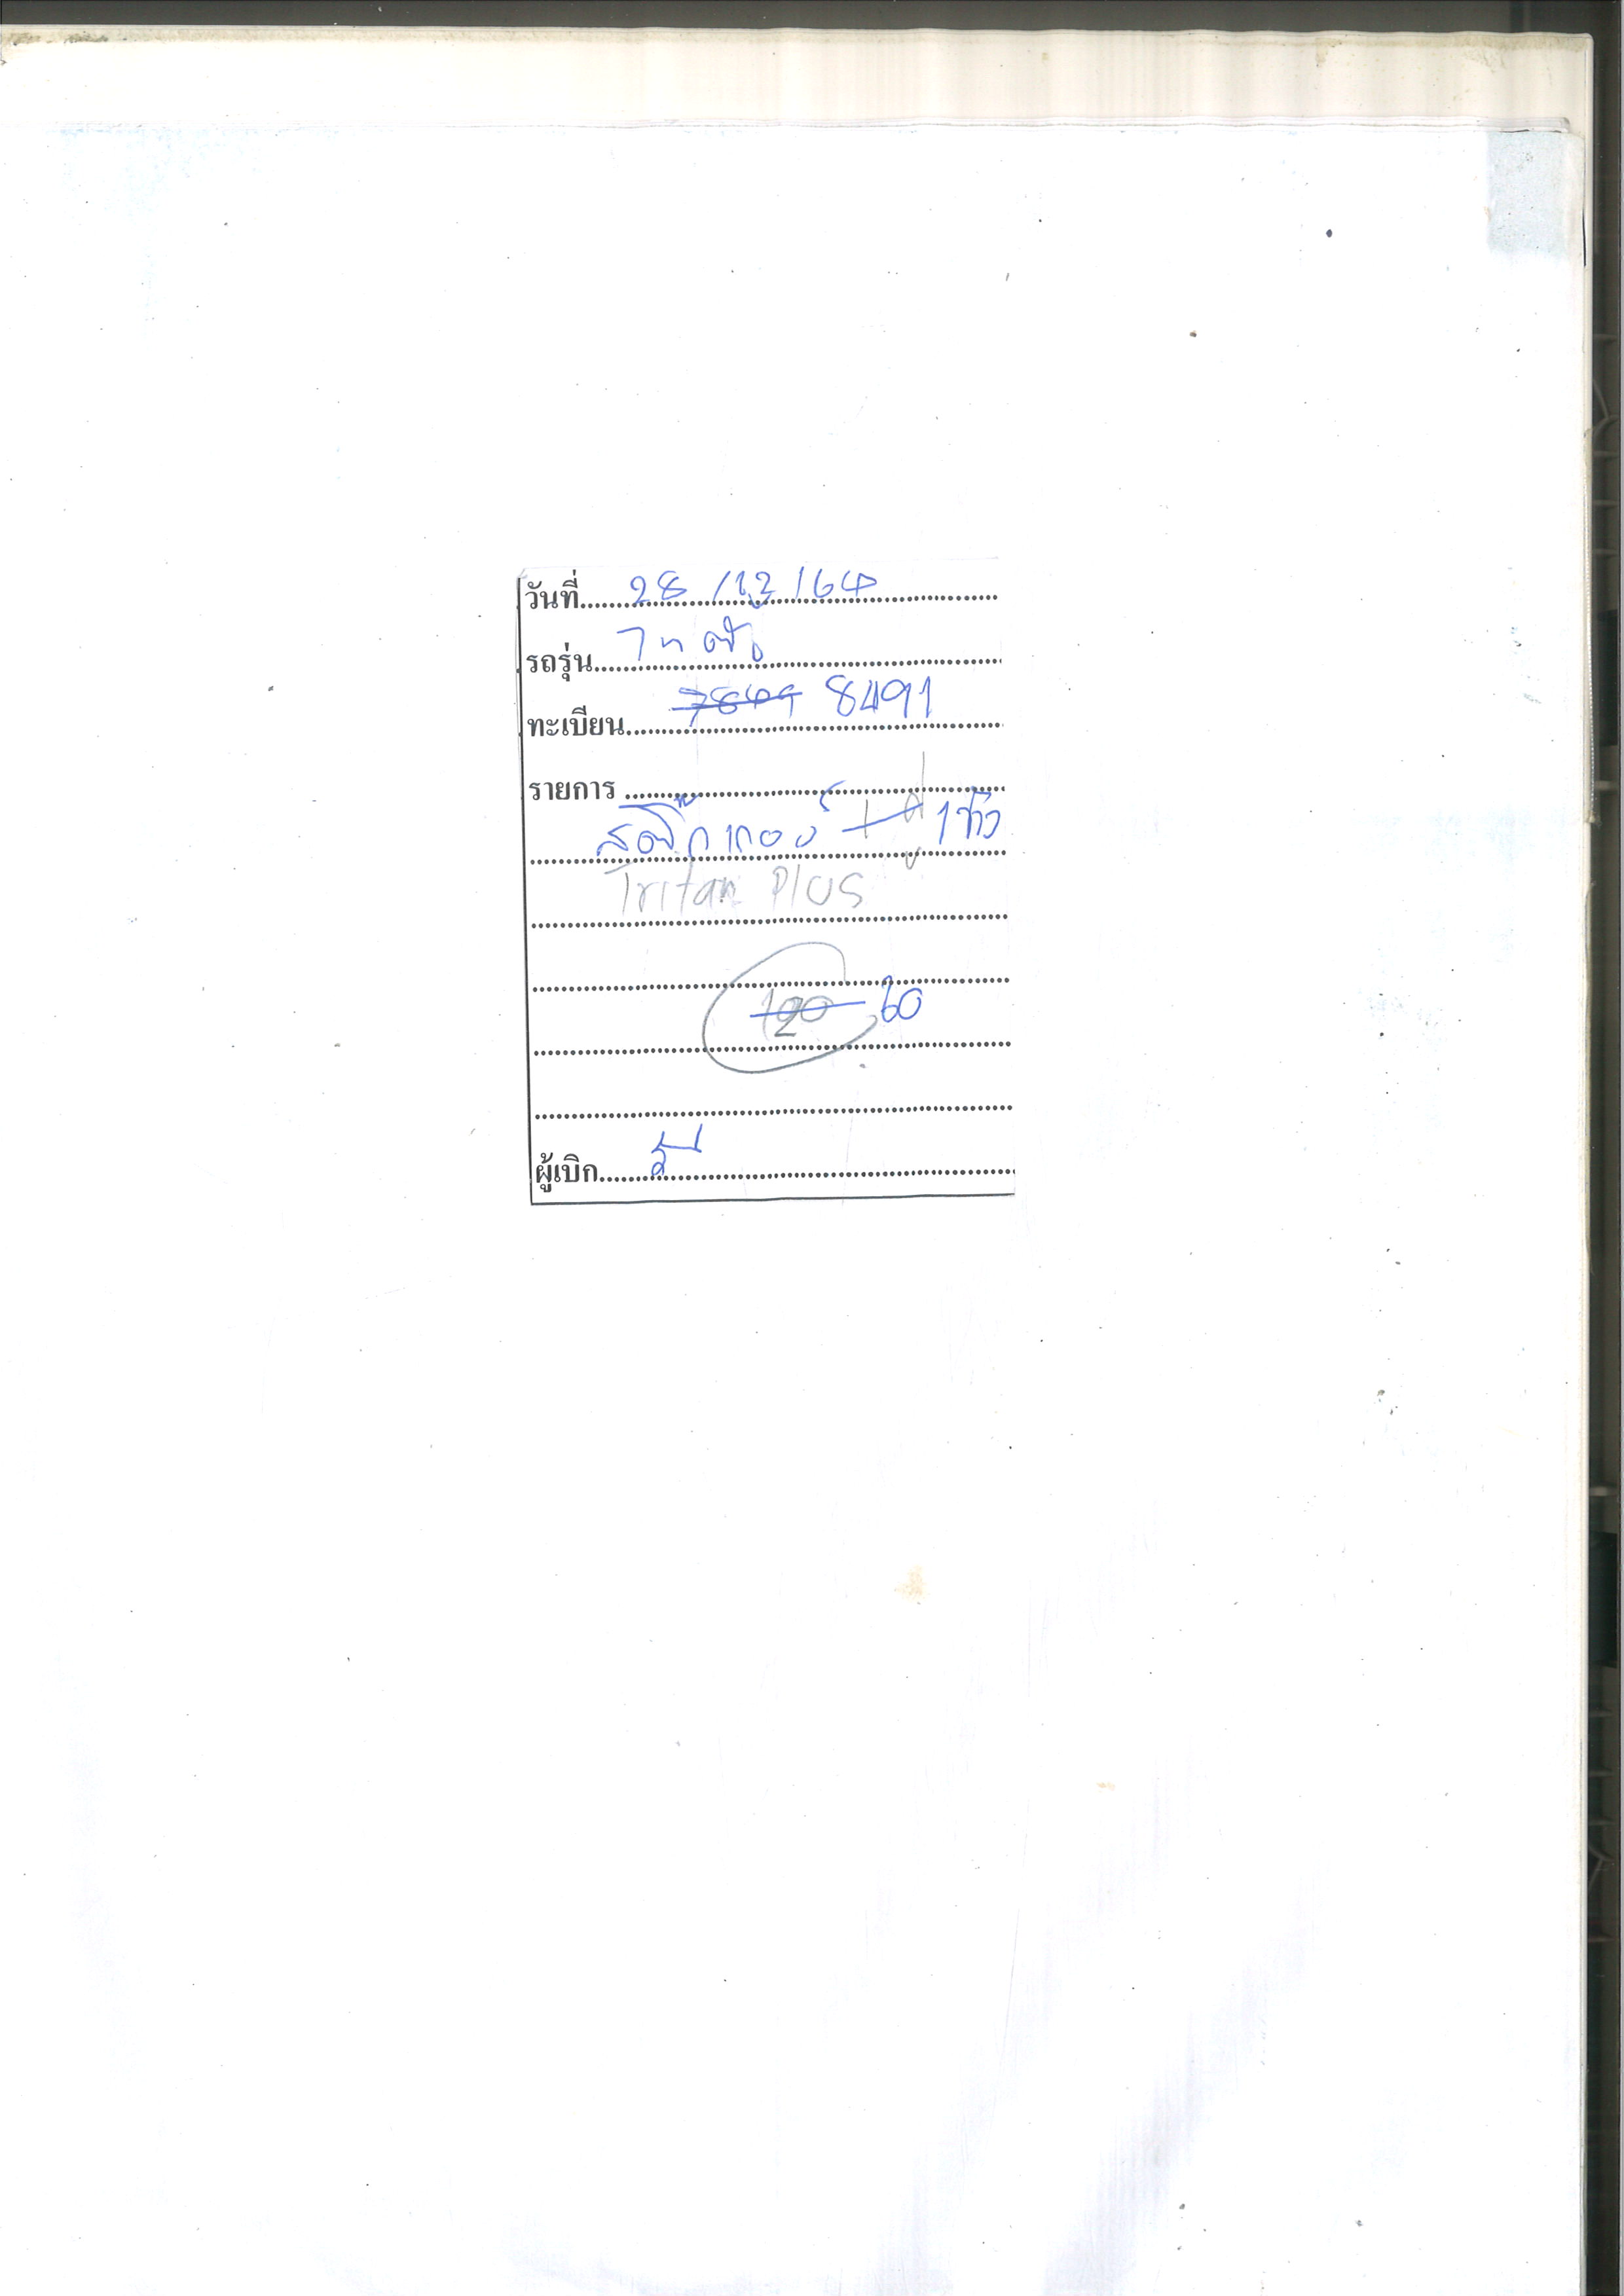 วันที่ 28/12/64
รถรุ่น
ทะเบียน 7849 8491
รายการ
สติ๊กเกอร์ 1 ตัว
Tritan Plus
120 60
ผู้เบิก